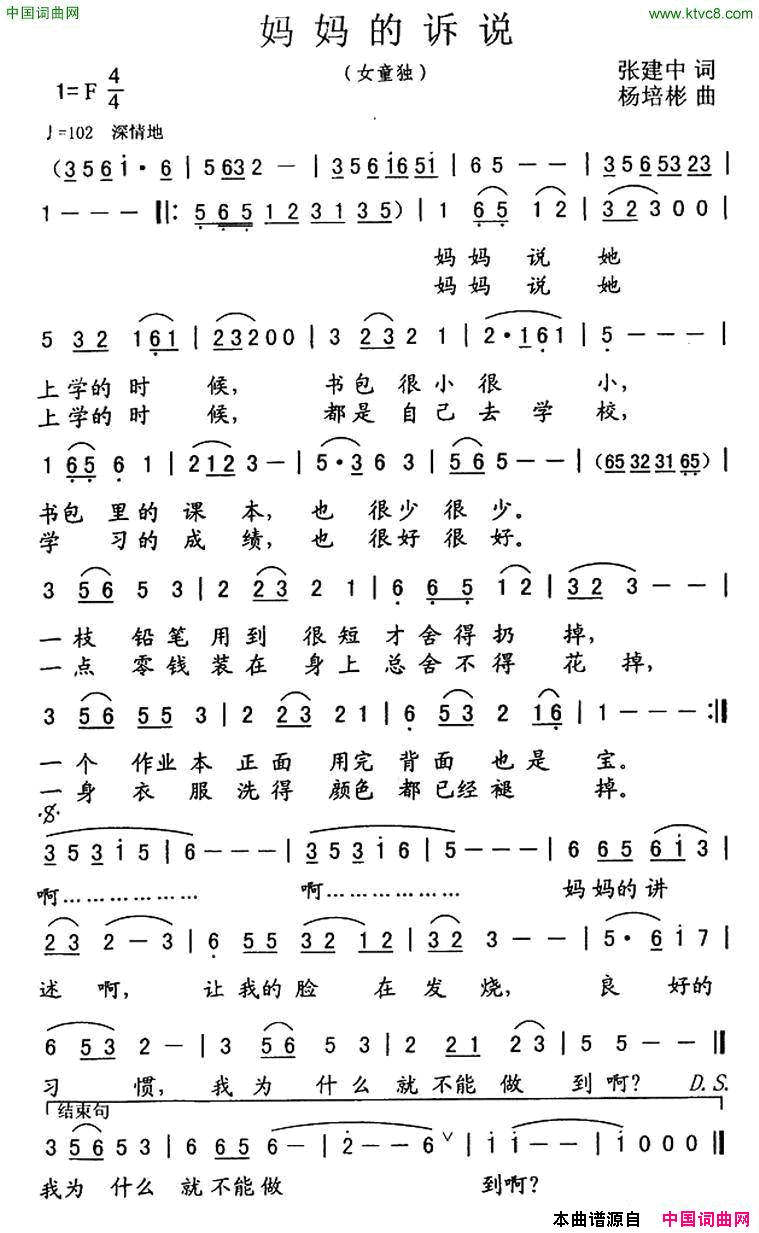 中国词曲网
www.ktvc8.com
妈妈的诉说
（女童独）
张建中 词
杨培彬 曲
1=F 4/4
♩=102 深情地
(3 5 6 i· 6 | 5 63 2 － | 3 5 6 i6 5i | 6 5 － － | 3 5 6 53 23 |
1 － － － ‖: 5 65 1 2 3 1 3 5) | 1 6 5 1 2 | 3 2 3 0 0 |
妈妈 说 她
妈妈 说 她
5 3 2 1 6 1 | 2 3 2 0 0 | 3 2 3 2 1 | 2· 1 6 1 | 5 － － |
上学的 时 候， 书包 很 小 很 小，
上学的 时 候， 都是 自 己 去 学 校，
1 6 5 6 1 | 2 1 2 3 － | 5· 3 6 3 | 5 6 5 － | (65 32 31 65) |
书包 里的 课 本， 也 很少 很 少。
学 习的 成 绩， 也 很好 很 好。
3 5 6 5 3 | 2 2 3 2 1 | 6 6 5 1 2 | 3 2 3 － － |
一枝 铅笔 用到 很短 才舍得扔 掉，
一点 零钱 装在 身上 总舍不得 花 掉，
3 5 6 5 5 3 | 2 2 3 2 1 | 6 5 3 2 1 6 | 1 － － － :‖
一个 作业本 正面 用完 背面 也是 宝。
一身 衣 服 洗得 颜色 都已经褪 掉。
3 5 3 i 5 | 6 － － － | 3 5 3 i 6 | 5 － － － | 6 6 5 6 i 3 |
啊……………… 啊……………… 妈妈的 讲
2 3 2 － 3 | 6 5 5 3 2 1 2 | 3 2 3 － － | 5· 6 i 7 |
述 啊， 让 我的 脸 在 发 烧， 良 好的
6 5 3 2 － | 3 5 6 5 3 | 2 2 1 2 3 | 5 5 － － ‖
习 惯， 我 为 什么 就 不能 做 到啊? D.S.
结束句
3 5 6 5 3 | 6 6 5 6 － | 2 － － 6 ∨ | i i － － | i 0 0 0 ‖
我为 什么 就 不能做 到啊?
本曲谱源自 中国词曲网